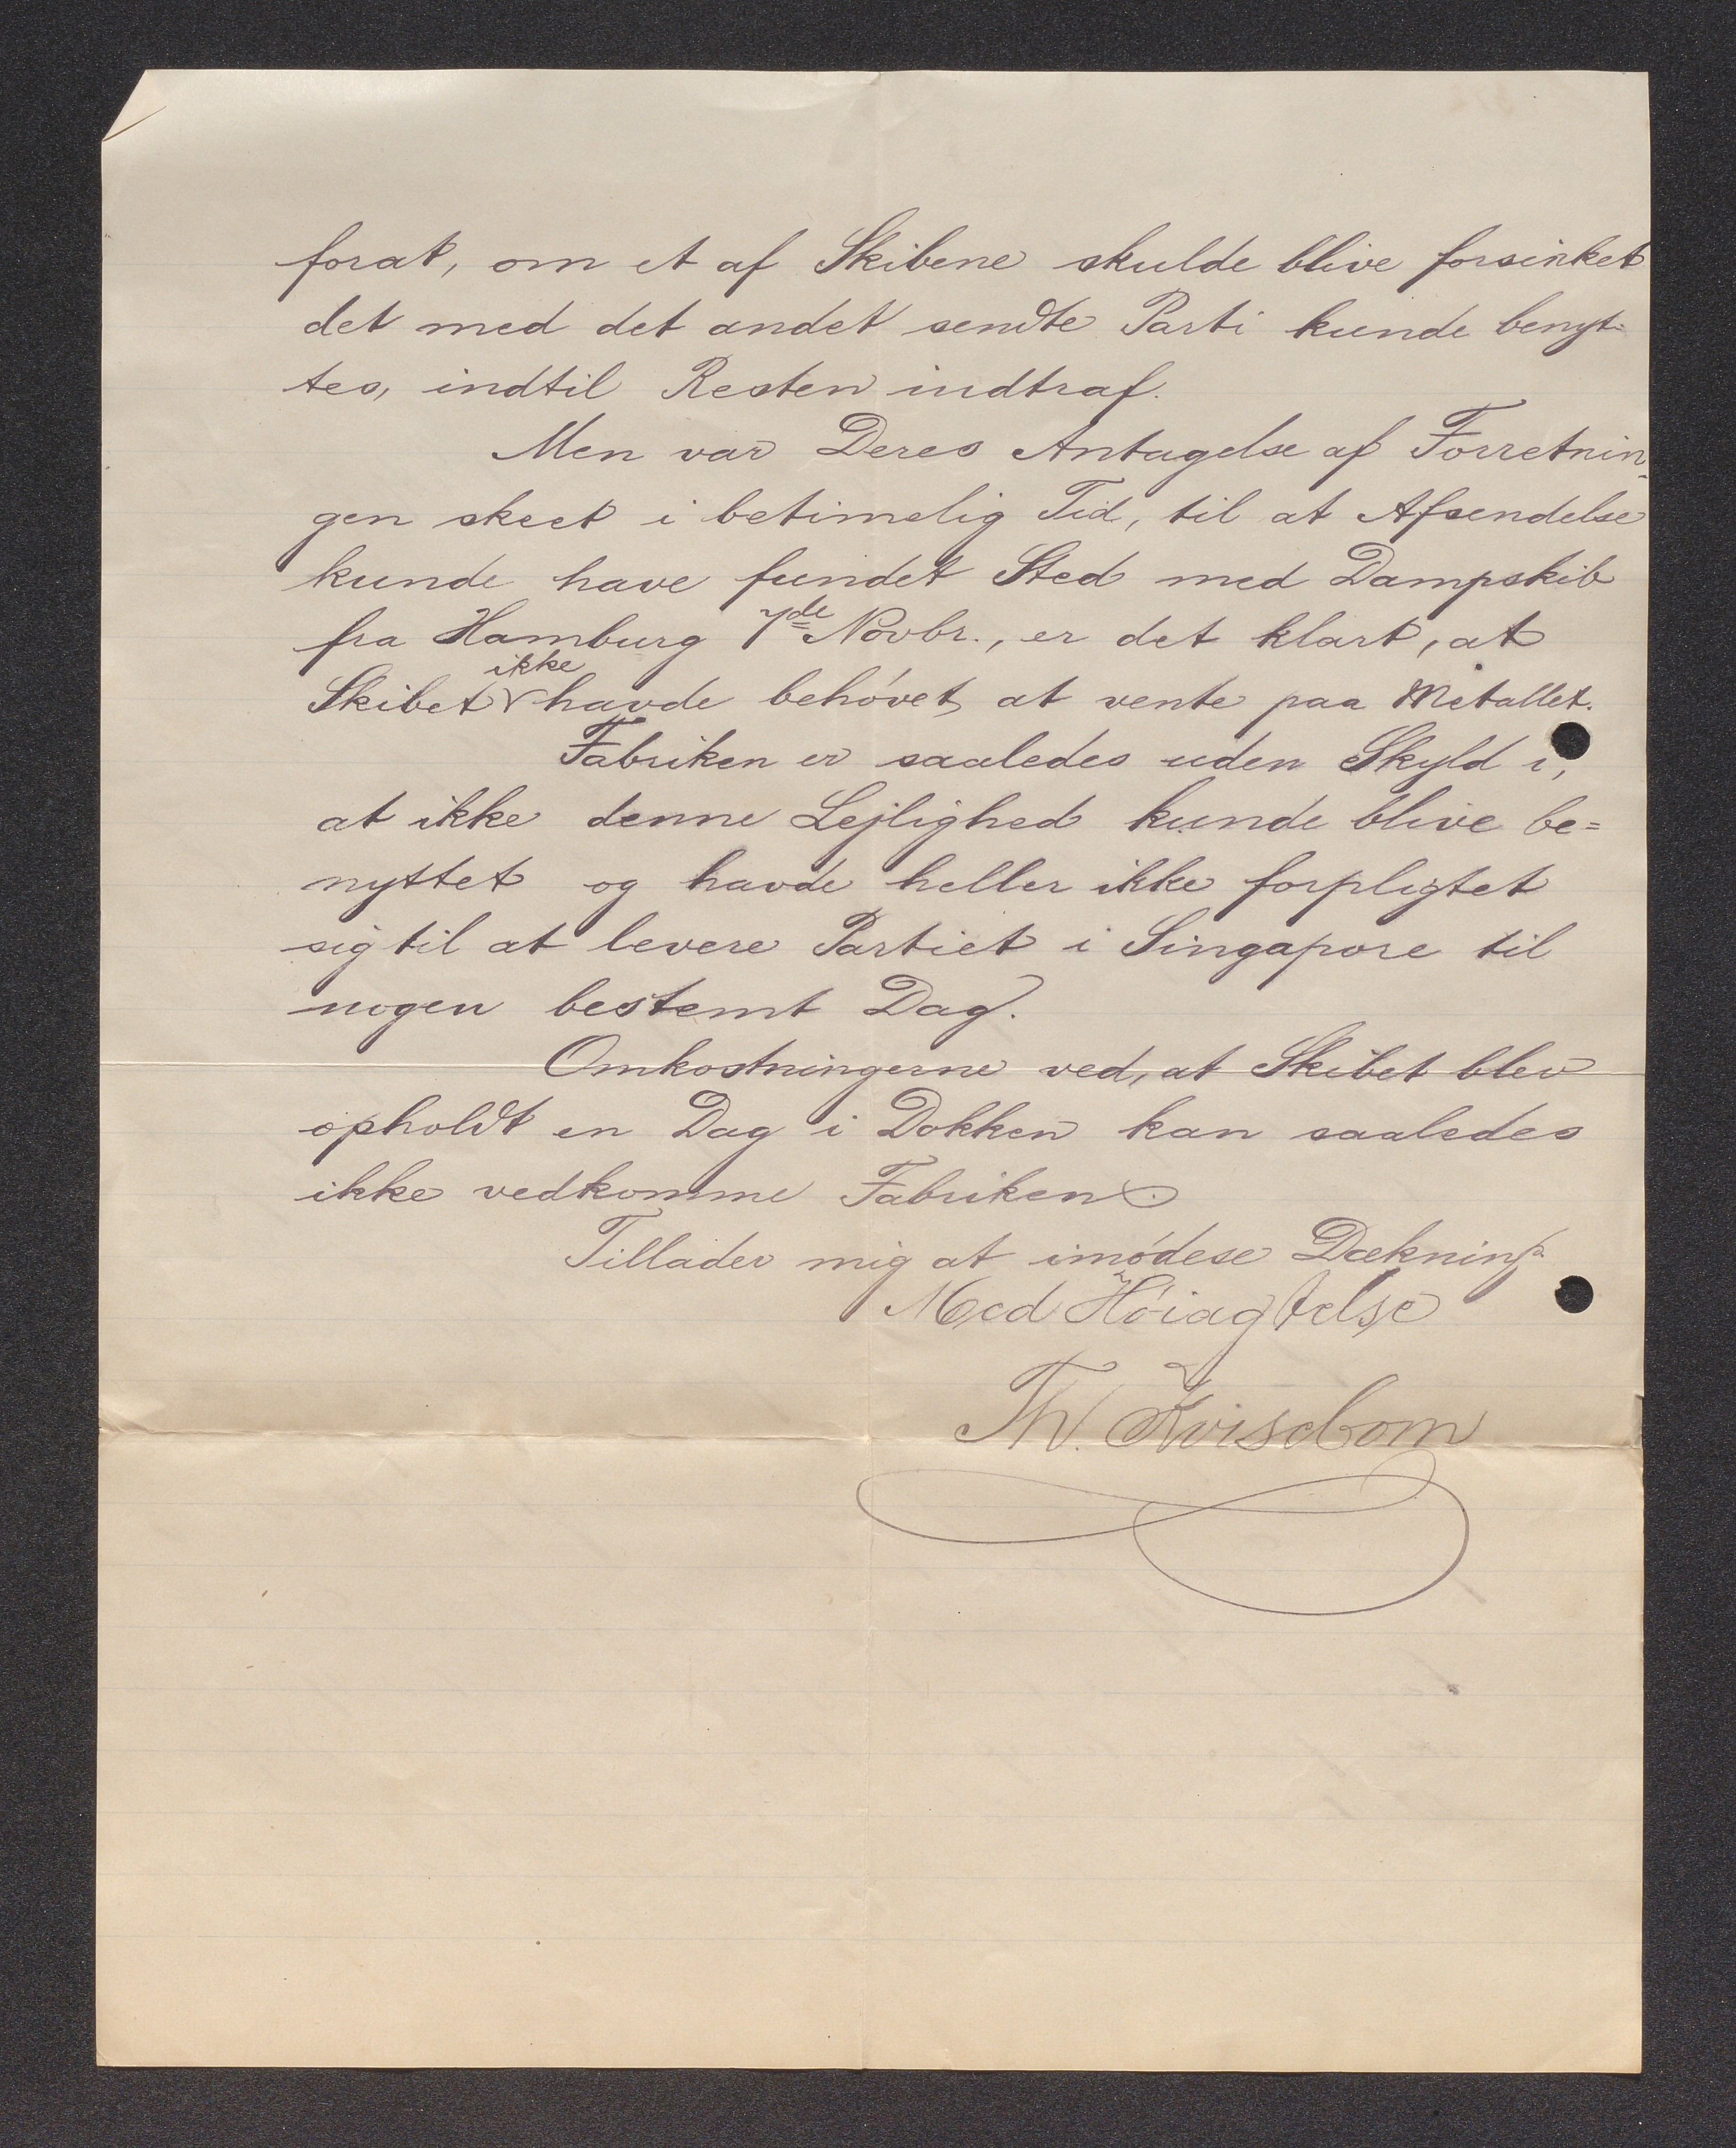 forat, om et af Skibene skulde blive forsinket
det med det andet sendte Parti kunde benyt-
tes, indtil Resten indtraf.
Men var Deres Antagelse af Forretnin-
gen skeet i betimelig Tid, til at Afsendelse
kunde have fundet Sted med Dampskib
fra Hamburg 7de Novbr., er det klart, at
Skibet ikke havde behøvet at vente paa Metallet.
Fabriken er saaledes uden Skyld i,
at ikke denne Lejlighed kunde blive be=
nyttet og havde heller ikke forpligtet
sig til at levere Partiet i Singapore til
nogen bestemt Dag.
Omkostningerne ved, at Skibet blev
opholdt en Dag i Dokken kan saaledes
ikke vedkomme Fabriken.
Tillader mig at imødese Dækning.
Med Høiagtelse
Th.